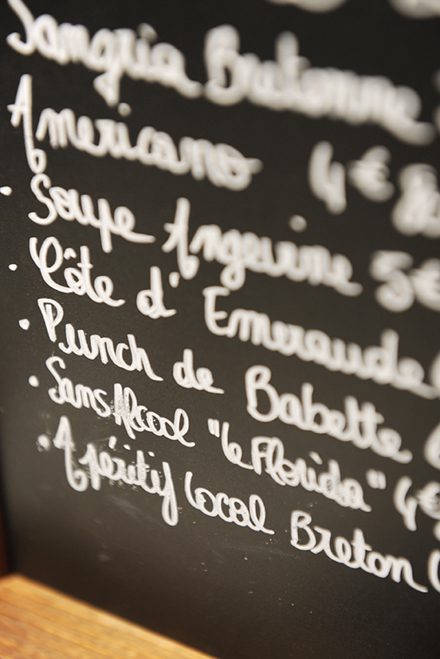 Sangria Bretonne
Americano 4€
• Soupe Angevine 5€
• Côte d'Emeraude
• Punch de Babette
• Sans Alcool "le Florida" 4€
• Apéritif local Breton